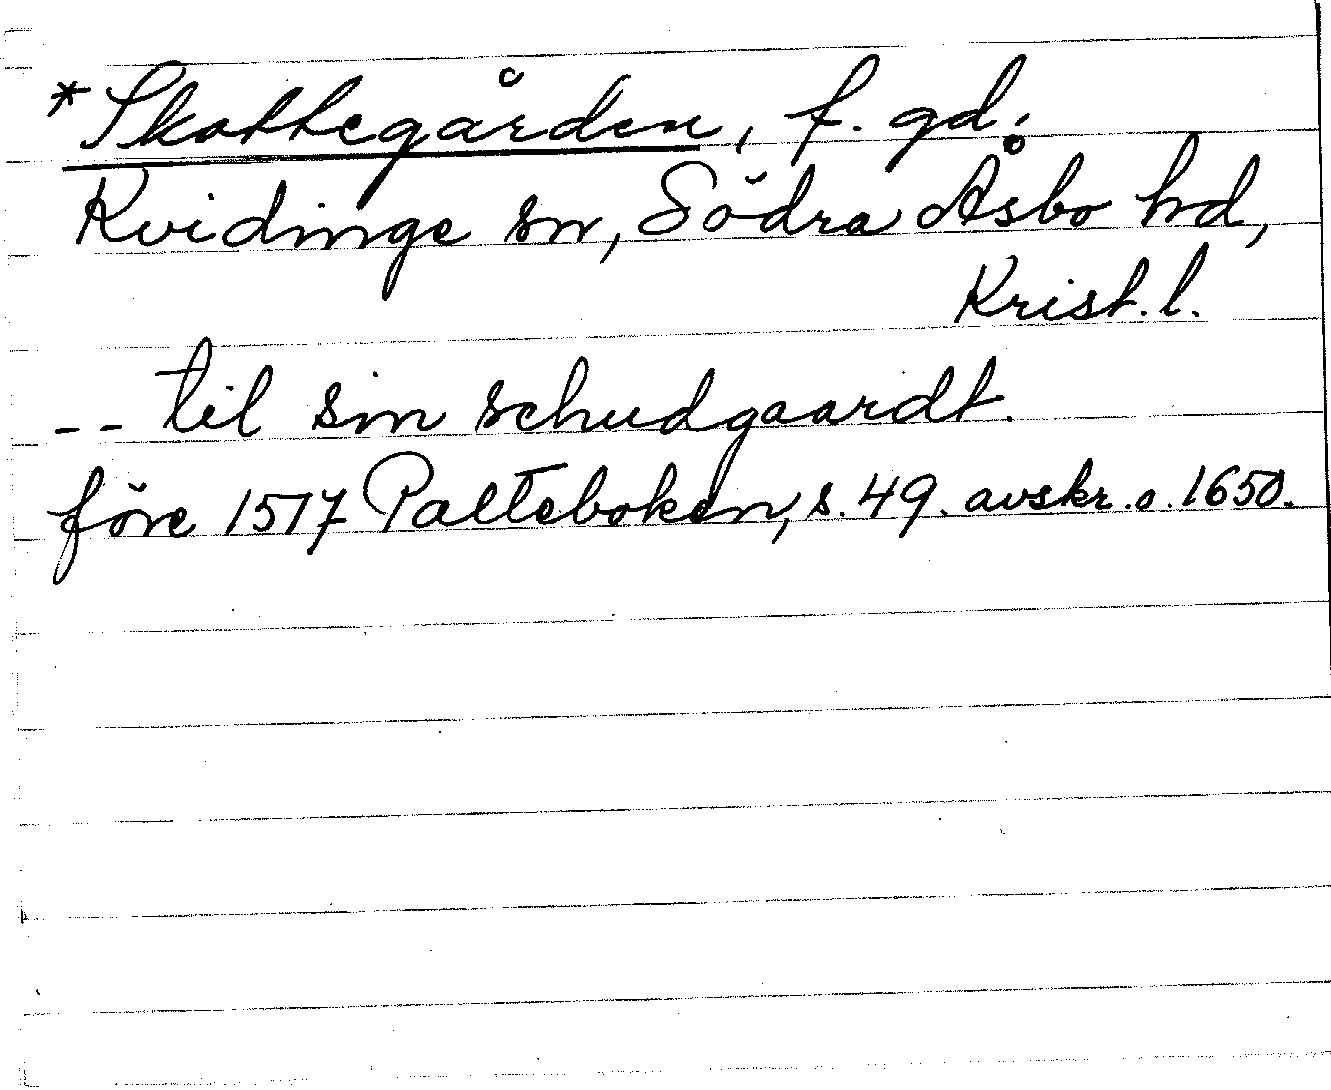 *Skattegården, f. gd.
Kvidinge sn, Södra Åsbo hd,
Krist. l.
-- til sin schudgaardt.
före 1517 Palteboken, s. 49. avskr. o. 1650.